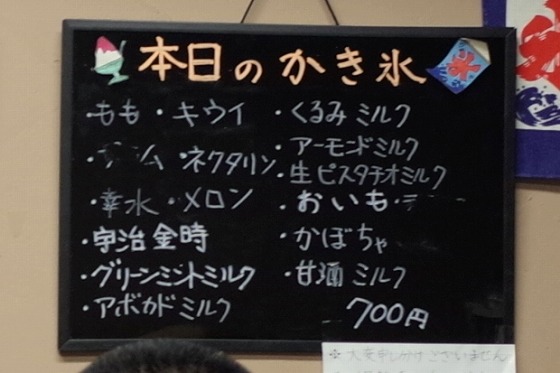 本日のかき氷
・もも・キウイ
ム・ネクタリン
・幸水・メロン
・宇治金時
・グリーンミントミルク
・アボカドミルク
・くるみミルク
・アーモンドミルク
・生ピスタチオミルク
・おいも・
・かぼちゃ
・甘酒ミルク
700円
※大変申し分けございません